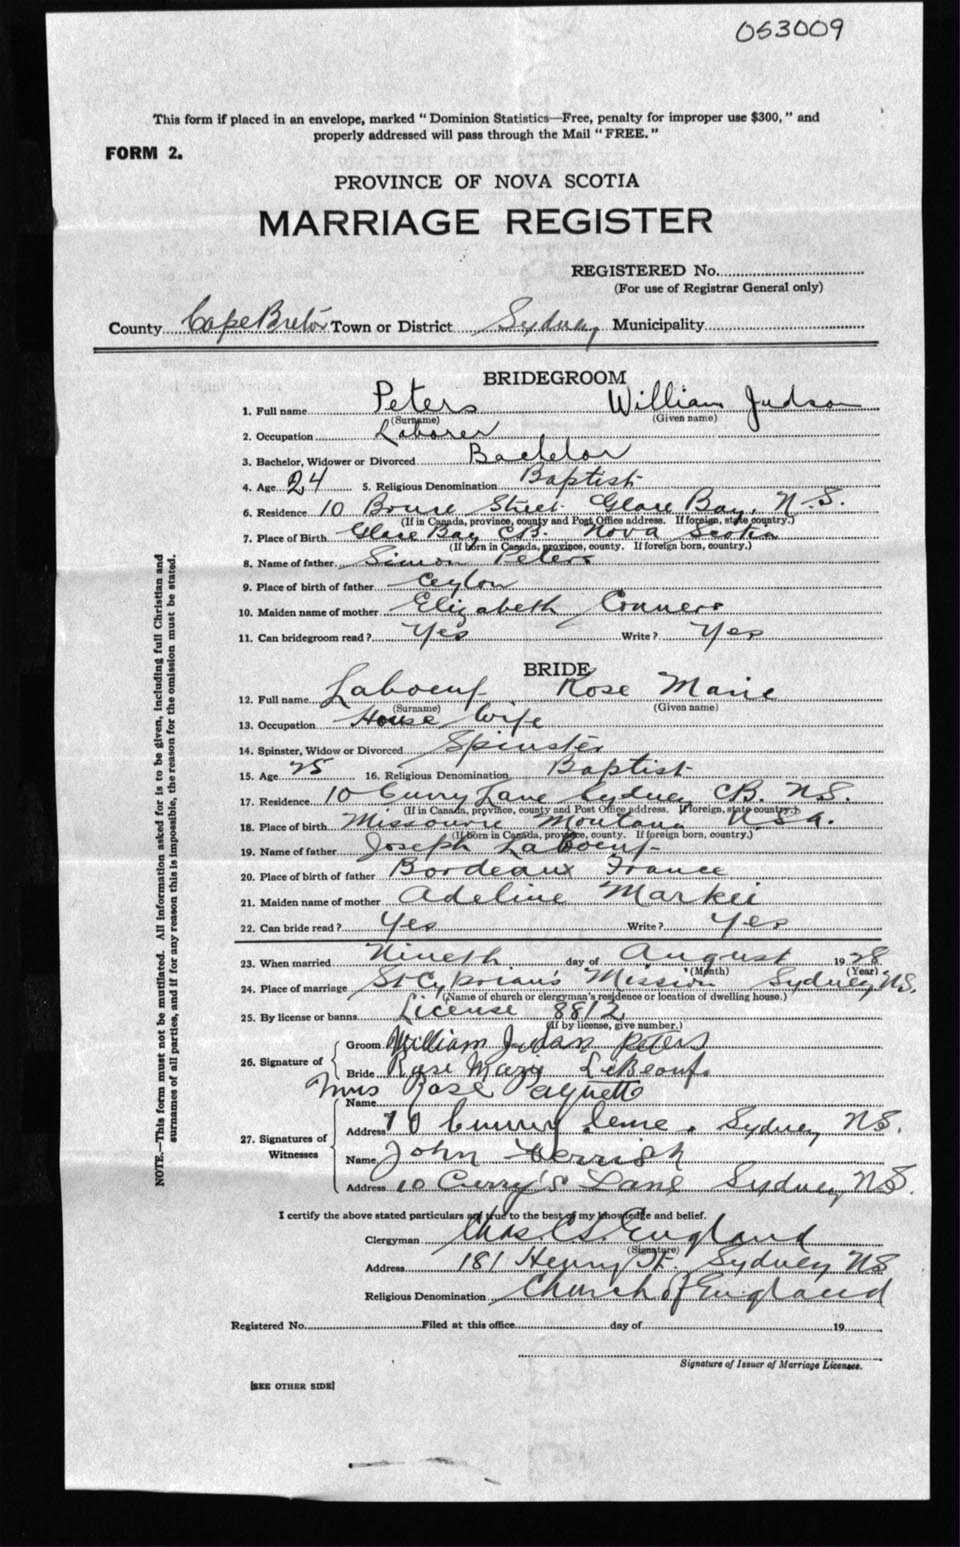 053009
This form if placed in an envelope, marked "Dominion Statistics—Free, penalty for improper use $300," and
properly addressed will pass through the Mail "FREE."
FORM 2.
PROVINCE OF NOVA SCOTIA
MARRIAGE REGISTER
REGISTERED No.
(For use of Registrar General only)
County Cape Breton Town or District Sydney Municipality
BRIDEGROOM
1. Full name Peters William Judson
(Surname) (Given name)
2. Occupation Laborer
3. Bachelor, Widower or Divorced Bachelor
4. Age 24 5. Religious Denomination Baptist
6. Residence 10 Bruce Street Glace Bay, N.S.
(If in Canada, province, county and Post Office address. If foreign, state country.)
7. Place of Birth Glace Bay CB. Nova Scotia
(If born in Canada, province, county. If foreign born, country.)
8. Name of father Simon Peters
9. Place of birth of father Ceylon
10. Maiden name of mother Elizabeth Conners
11. Can bridegroom read? Yes Write? Yes
BRIDE
12. Full name Laboeuf Rose Marie
(Surname) (Given name)
13. Occupation House Wife
14. Spinster, Widow or Divorced Spinster
15. Age 25 16. Religious Denomination Baptist
17. Residence 10 Curry Lane Sydney CB. N.S.
(If in Canada, province, county and Post Office address. If foreign, state country.)
18. Place of birth Missourie Montana U.S.A.
(If born in Canada, province, county. If foreign born, country.)
19. Name of father Joseph Laboeuf
20. Place of birth of father Bordeaux France
21. Maiden name of mother Adeline
22. Can bride read? Yes Write? Yes
23. When married Nineth day of August 1928
(Month) (Year)
24. Place of marriage St Cyprian's Mission Sydney N.S.
(Name of church or clergyman's residence or location of dwelling house.)
25. By license or banns License 8812
(If by license, give number.)
26. Signature of Groom William Judson Peters
Bride Rose Mary LeBeouf
27. Signatures of Witnesses
Name Mrs Rose Paynette
Address 10 Curry lane, Sydney N.S.
Name John
Address 10 Curry's Lane Sydney N.S.
I certify the above stated particulars are true to the best of my knowledge and belief.
Clergyman Chas. C.S. England
(Signature)
Address 181 Henry St. Sydney N.S
Religious Denomination Church of England
Registered No. Filed at this office day of 19
Signature of Issuer of Marriage Licenses.
[SEE OTHER SIDE]
NOTE.—This form must not be mutilated. All information asked for is to be given, including full Christian and
surnames of all parties, and if for any reason this is impossible, the reason for the omission must be stated.